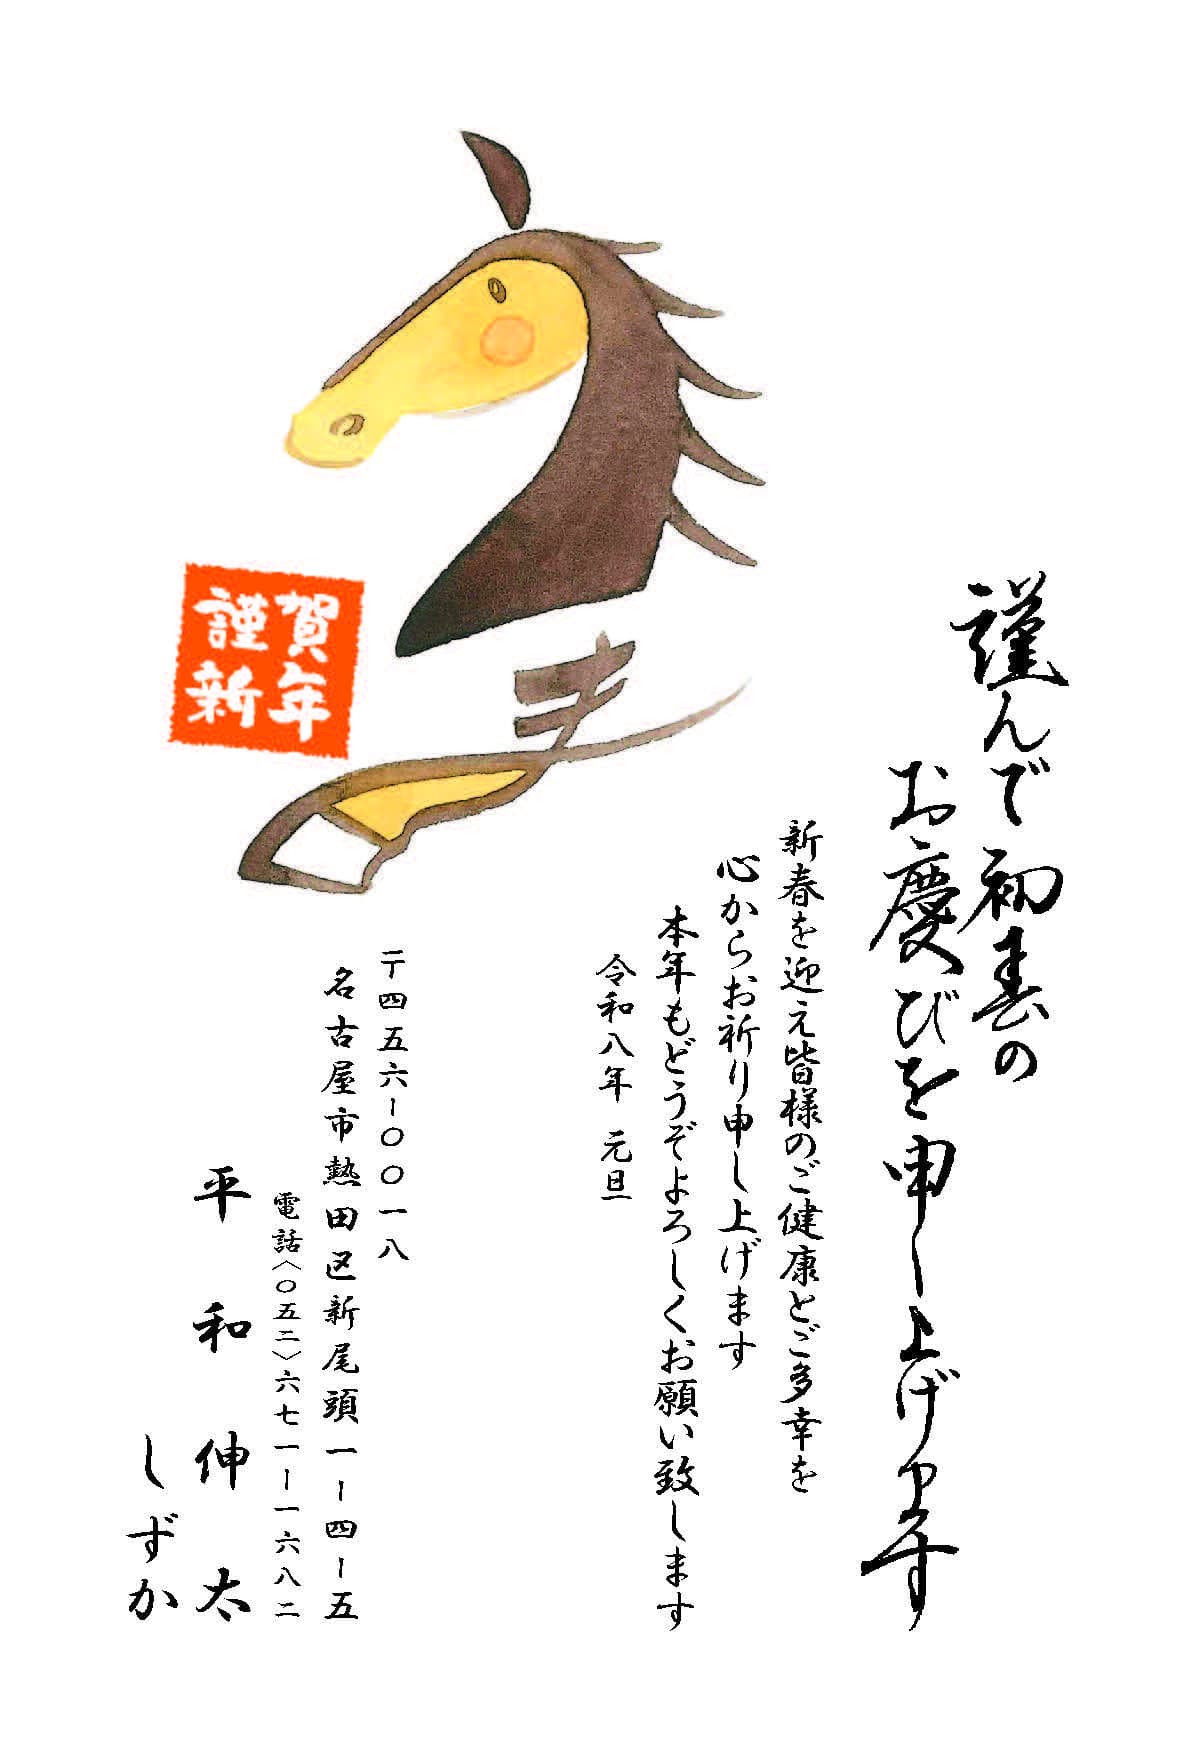 謹賀
新年
謹んで初春の
お慶びを申し上げます
新春を迎え皆様のご健康とご多幸を
心からお祈り申し上げます
本年もどうぞよろしくお願い致します
令和八年 元旦
〒四五六ー〇〇一八
名古屋市熱田区新尾頭一ー四ー五
電話〈〇五二〉六七一ー一六八二
平和伸太
しずか